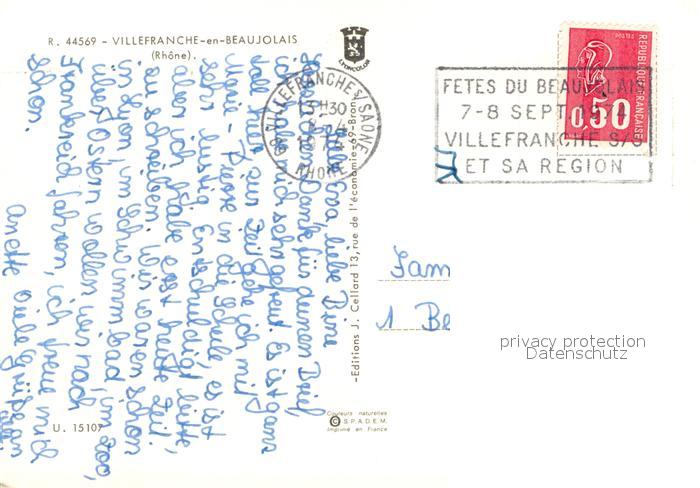 R. 44569 - VILLEFRANCHE-en-BEAUJOLAIS
(Rhône).
LYONCOLOR
69 VILLEFRANCHE S/SAONE
13H30
1974
RHONE
FETES DU BEAUJOLAIS
7-8 SEPT
VILLEFRANCHE S/S
ET SA REGION
POSTES
REPUBLIQUE FRANÇAISE
0,50
liebe Oma, liebe Tine
vielen Dank für deinen Brief
habe mich sehr gefreut. Es ist ganz
toll hier. zur Zeit gehe ich mit
Marie-Pierre in die Schule, es ist
sehr lustig. Entschuldigt bitte,
aber ich habe erst heute Zeit,
zu schreiben. Wir waren schon
in Lyon im Schwimmbad, im Zoo,
über Ostern wollen wir nach
Frankreich fahren, ich freue mich
schon.
Viele Grüße an
Anette
-Editions J. Cellard 13, rue de l'économie-69-Bron-
Fam
1 Be
privacy protection
Datenschutz
Couleurs naturelles
© S.P.A.D.E.M.
Imprimé en France
U. 15107